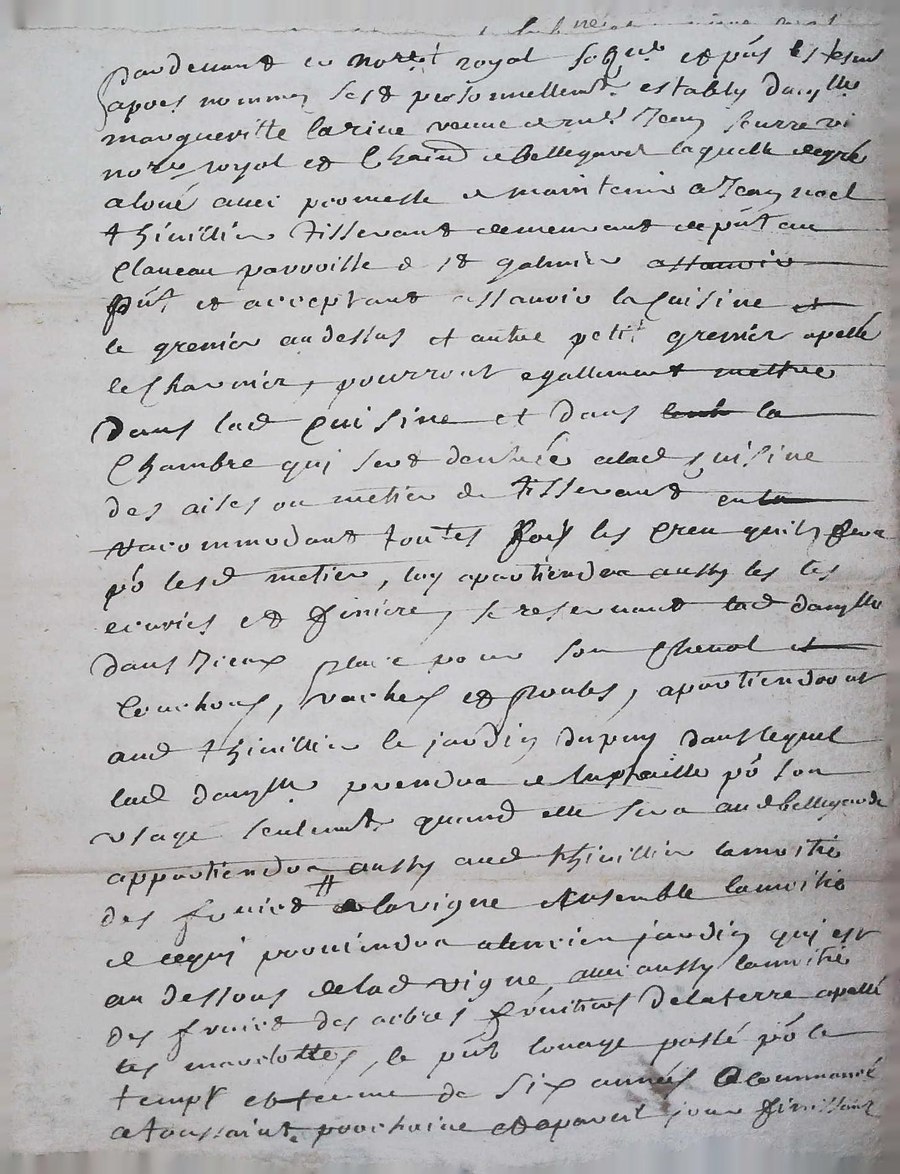 pardevant le no.re royal sousig.né et p̃ns les tesm
apres nommes fust personnellem.t establÿ dam.lle
margueritte larive veuve de m.re Jean
no.re royal et de bellegarde laquelle de gré
a loué avec promesse de maintenir a Jean noel
thivillier tisserant demeurant de p̃nt au
planeau parroisse de st galmier
p̃nt et acceptant assavoir la Cuisine et
le grenier au dessus et autre petit grenier apellé
le Charnier, pourront egallement mettre
Dans lad Cuisine et dans la
Chambre qui sert derriere a lad Cuisine
des aises ou metier de tisserant
acommodant toutes fois les creu quils fera
po lesd metier, luy apartiendra aussy les
ecuries et finiere, se reservant lad dam.lle
dans Jceux place pour son cheval et
Couchons, vaches et poules, apartiendront
aud thivillier le jardin du puy dans lequel
lad dam.lle prendra po son
usage seulem.t quand elle sera aud bellegarde
appartiendra aussy aud thivillier la moitié
des fruicts # de la vigne Ensemble la moitié
de ce qui proviendra a lencien jardin qui est
au dessous de lad vigne, avec aussy la moitié
des fruicts des arbres fruitiers De la terre apellé
les mavelottes, le p̃nt louage passé po le
temps et terme de Six années a Commancé
a toussaints prochaine et a pareil jour finissant